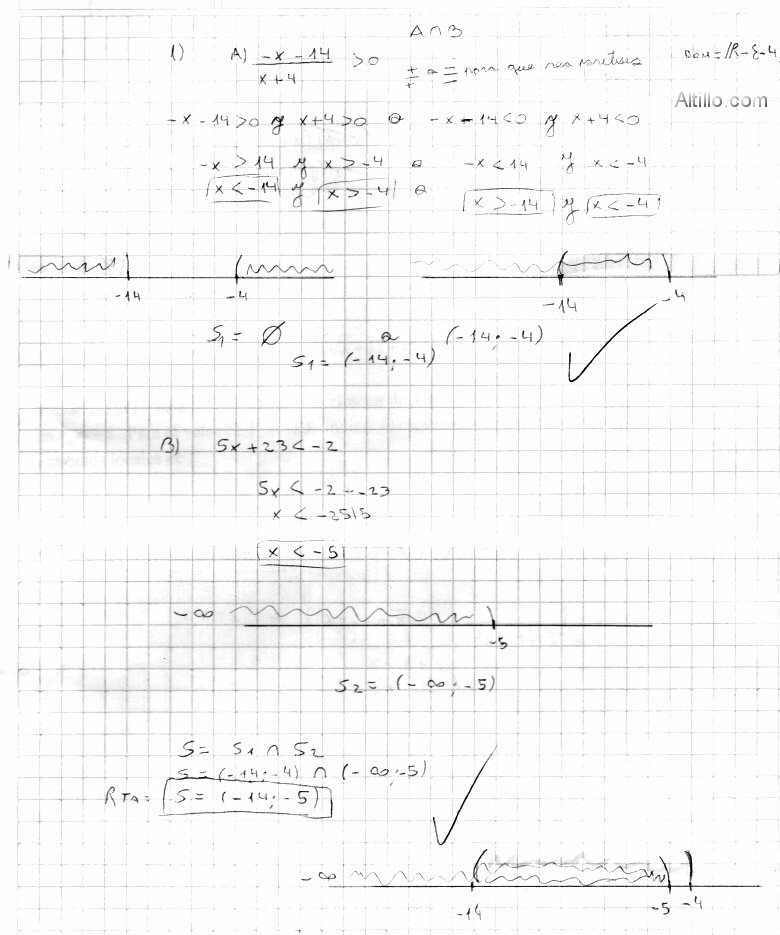 A ∩ B
1) A) -x - 14 / x + 4 > 0 + / + o - / - para que sea positivo Dom = /R - {-4
Altillo.com
-x - 14 > 0 y x + 4 > 0 o -x - 14 < 0 y x + 4 < 0
-x > 14 y x > -4 o -x < 14 y x < -4
x < -14 y x > -4 o x > -14 y x < -4
-14 -4 -14 -4
S1 = ∅ o (-14; -4)
S1 = (-14; -4)
B) 5x + 23 < -2
5x < -2 - 23
x < -25/5
x < -5
-∞
-5
S2 = (-∞; -5)
S = S1 ∩ S2
S = (-14; -4) ∩ (-∞; -5)
RTA = S = (-14; -5)
-∞
-14 -5 -4